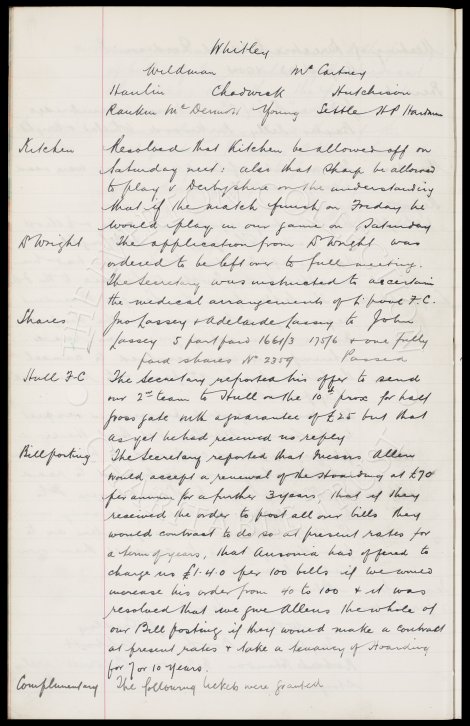 Whitley
Wildman Mc Cartney
Hanlin Chadwick Hutchinson
Rankin McDermott Young Settle H P Hardman
Kitchen Resolved that Kitchen be allowed off on
Saturday next: also that Sharp be allowed
to play v Derbyshire on the understanding
that if the match finish on Friday he
would play in our game on Saturday
Dr Wright The application from Dr Wright was
ordered to be left over to full meeting.
The Secretary was instructed to ascertain
the medical arrangements of L'pool F.C.
Shares Jno Lassey & Adelaide Lassey to John
Lassey 5 part paid 1661/3 175/6 & one fully
paid shares No 2359 Passed
Hull F C The Secretary reported his offer to send
our 2nd team to Hull on the 10th prox for half
gross gate with a guarantee of £25 but that
as yet he had received no reply
Billposting The Secretary reported that Messrs Allen
would accept a renewal of the Hoarding at £70
per annum for a further 3 years, that if they
received the order to post all our bills they
would contract to do so at present rates for
a term of years, that Ausonia had offered to
charge us £1-4-0 per 100 bills if we would
increase his order from 40 to 100 & it was
resolved that we give Allens the whole of
our Bill posting if they would make a contract
at present rates & take a tenancy of Hoarding
for 7 or 10 years.
Complimentary The following tickets were granted